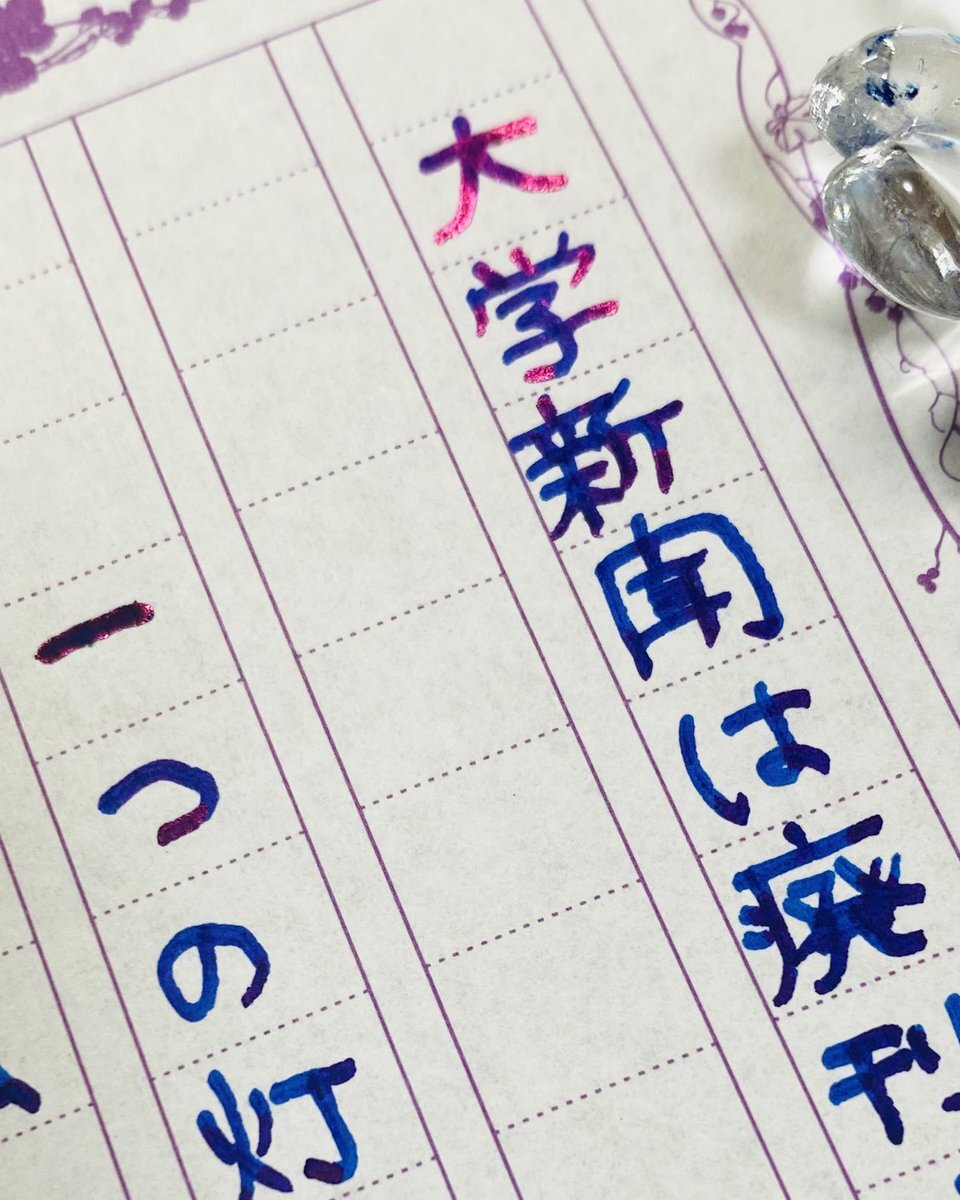 大学新聞は廃刊
一つの灯